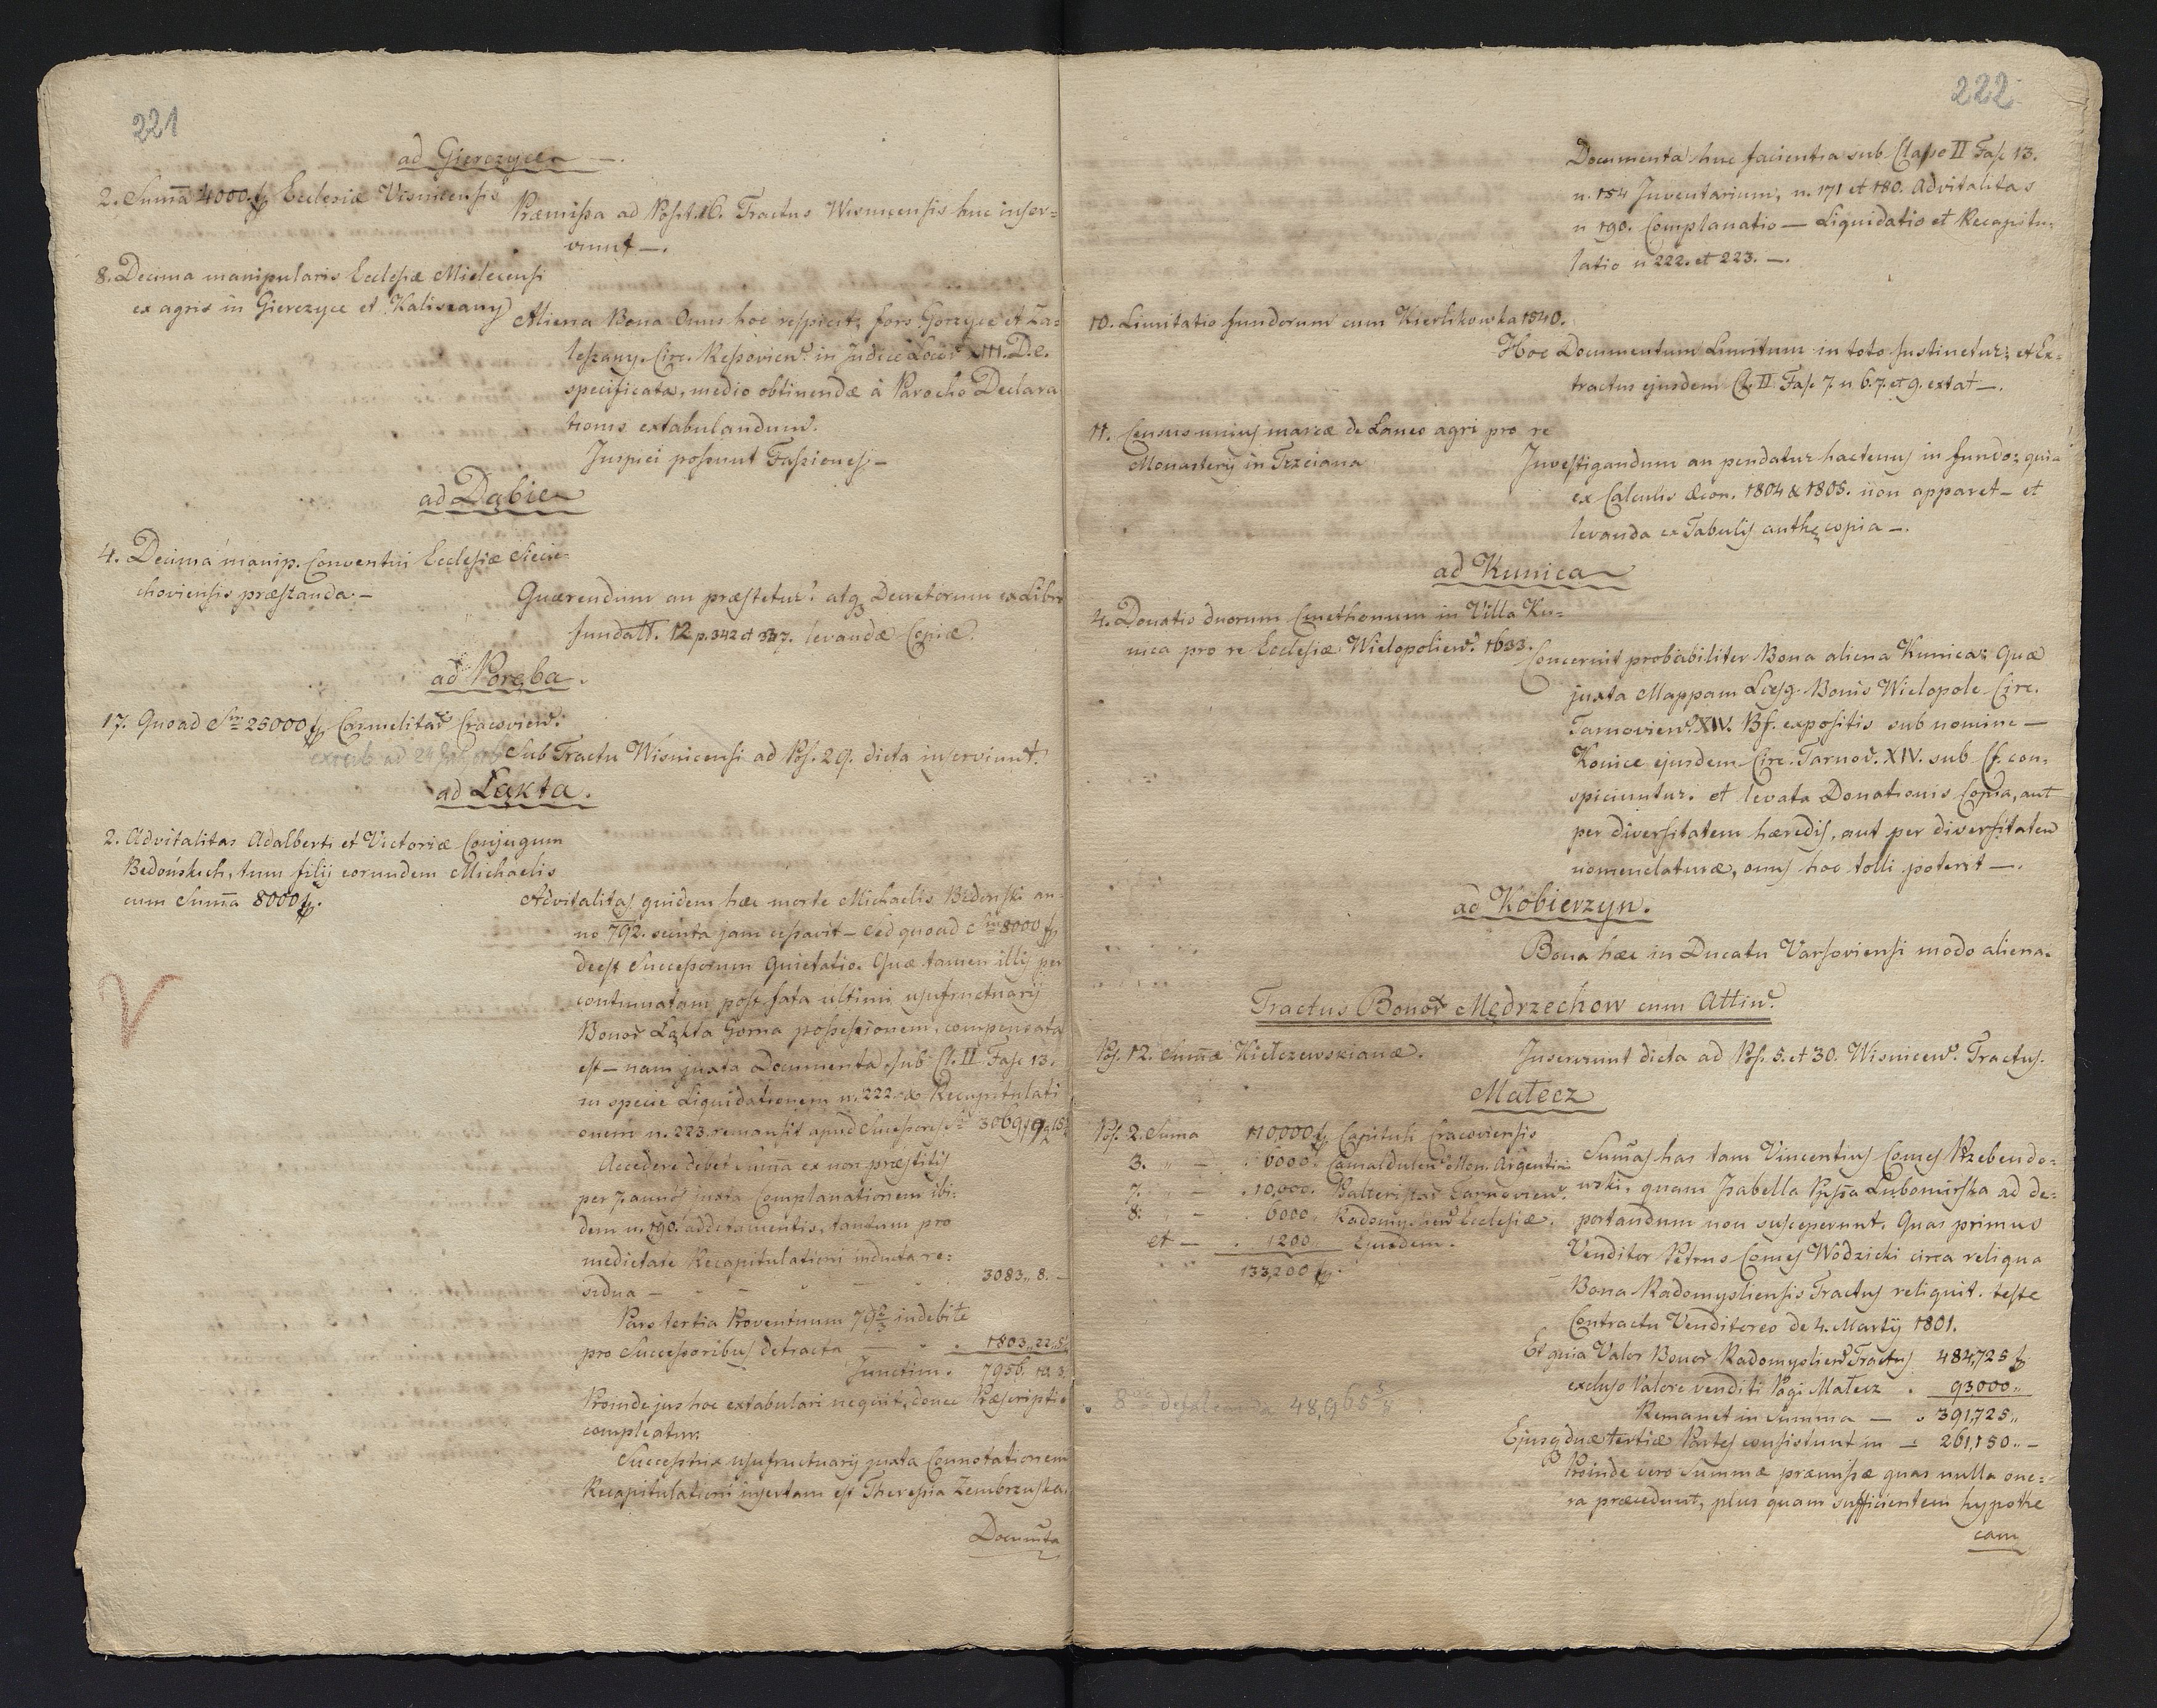 221
ad Gierczyce —.
2. Suma 4000 f Ecclesiæ Visnicensis
Præmissa ad Posit. 16. Tractus Wisnicensis huc inser=
viunt —.
8. Decima manipularis Ecclesiæ Mielecensi
ex agris in Gierczyce et Kaliszany
Aliena Bona Onus hoc respicit, fors Gorzyce et Za=
leszany. Circ. Ressovien. in Judice Locor. III. D.e.
specificata, medio obtinendæ à Parocho Declara
tionis extabulandum.
Juspici possunt Fassiones —
ad Dąbie
4. Decima manip. Conventui Ecclesiæ Siecie-
choviensis præstanda —
Quærendum an præstetur? atq Decretorum ex Libr
fundatt. 12 p. 342 et 347. levandæ Copiæ.
ad Poręba.
17. Quoad Sum 25000 f Carmelitar Cracovien.
Sub Tractu Wisnicensi ad Pos. 29. dicta inserviunt.
ad Łąkta.
2. Advitalitas Adalberti et Victoriæ Conjugum
Bedońskich, tum filij eorundem Michaelis
cum Suma 8000 f.
Advitalitas quidem hæc morte Michaelis Bedonski an-
no 792. secuta jam cessavit — Sed quoad Sum 8000 f
deest Successorum Quietatio. Quæ tamen illis per
continuatam post fata ultimi usufructuarij
Bonor Łąkta Gorna possessionem, compensata
est — nam juxta Documenta sub Cl. II Fasc 13.
in specie Liquidationem n. 222. & Recapitulati
onem n. 223. remansit apud Successores 3069 f 9 15
Accedere debet Suma ex non præstitis
per 7. annos juxta Complanationem ibi=
dem n. 190. addetamentis, tantum pro
medietate Recapitulationi inducta re=
sidua — - - — - 3083,, 8. —
Pars tertia Proventuum 79 2/3 indebite
pro Successoribus detracta — - . 1803,, 22,, 5
Junctim. 7956. 10. 3.
Proinde jus hoc extabulari nequit, donec Præscriptio
compleatur.
Succestrix usufructuarij juxta Connotationem
Recapitulationi insertam est Theressia Zembrzuska.
Documta
222
Documenta huc facientia sub Classe II Fasc 13.
n. 154 Inventarium, n. 171 et 180. Advitalitas
n 190. Complanatio — Liquidatio et Recapitu=
latio n 222. et 223. —.
10. Limitatio fundorum cum Kierlikowka 1540.
Hoc Documentum Limitum in toto sustinetur, et Ex=
tractus ejusdem Cl. II Fasc 7. n 6. 7. et 9. extat —.
11. Census unius marcæ de Laneo agri pro re
Monasterij in Trzciana
Investigandum an pendatur hactenus in fundo: quia
ex Calculis Æcon. 1804 & 1805. non apparet — et
levanda ex Tabulis auth. copia —.
ad Kunica
4. Donatio duorum Cmethonum in Villa Ku=
nica pro re Ecclesiæ Wielopolien. 1633.
Concernit probabiliter Bona aliena Kunica: Quæ
juxta Mappam Liesg. Bonis Wielopole Circ.
Tarnovien. XIV. Bf. expositis sub nomine —
Konice ejusdem Circ. Tarnov. XIV. sub Cf. con-
spiciuntur. et levata Donationis Copia, aut
per diversitatem hæredis, aut per diversitatem
nomenclaturæ, onus hoc tolli poterit —.
ad Kobierzyn.
Bona hæc in Ducatu Varsoviensi modo aliena.
Tractus Bonor Mędrzechow cum Attin.
Pos. 12. Sumæ Kielczewskianæ.
Inserviunt dicta ad Pos. 5. et 30. Wisnicen. Tractus.
Małecz
Pos. 2. Suma 110,000 f Capituli Cracoviensis
3. „ — . 6000. Camaldulen. Mon. Argentini
7. „ — . 10,000. Tarnovien.
8. „ — . 6000. Radomyslien. Ecclesiæ.
et — . 1200. Ejusdem.
133,200 f.
Sumas has tam Vincentius Comes Przebendo=
wski, quam Isabella Lubomirska ad de=
portandum non susceperunt. Quas primus
Venditor Petrus Comes Wodzicki circa reliqua
Bona Radomysliensis Tractus reliquit. teste
Contractu Venditoreo de 4. Martij 1801.
Et quia Valor Bonor Radomyslien. Tractus 484,725 f
excluso Valore venditi Pagi Małecz . 93,000,,
Remanet in Summa — . 391,725,,
Ejusq duæ tertiæ Partes consistunt in — 261,150,, —
8 defalcanda 48,965 5/8
Proinde vero Summæ præmissæ quas nulla one=
ra præcedunt, plus quam sufficientem hypothe
cam